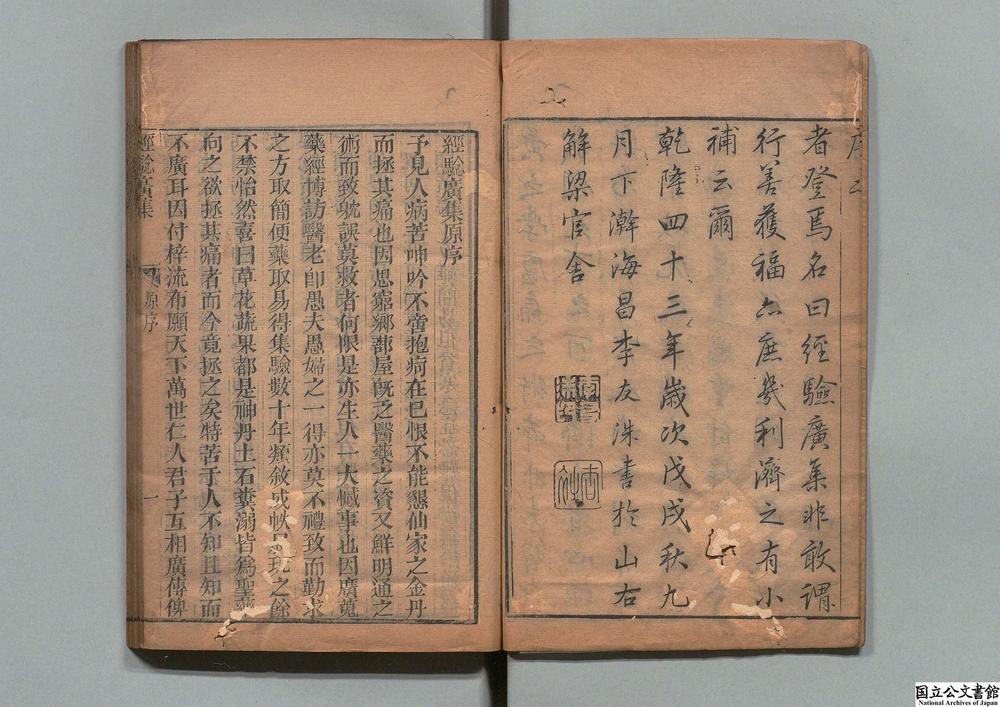 者登焉名曰經驗廣集非敢謂
行善獲福亦庶幾利濟之有小
補云爾
乾隆四十三年歲次戊戌秋九
月下澣海昌李友洙書於山右
解梁官舍
經驗廣集原序
予見人病苦呻吟不啻抱疴在已恨不能懇仙家之金丹
而拯其痛也因思窮鄉蔀屋旣乏醫藥之資又鮮明通之
術而致躭誤莫救者何限是亦生人一大憾事也因廣蒐
藥經博訪醫老卽愚夫愚婦之一得亦莫不禮致而勤求
之方取簡便藥取易得集驗數十年類敘成帙展玩之餘
不禁怡然喜曰草花蔬果都是神丹土石糞溺皆爲聖藥
向之欲拯其痛者而今竟拯之矣特苦于人不知且知而
不廣耳因付梓流布願天下萬世仁人君子互相廣傳俾
經驗廣集
原序
一
国立公文書館
National Archives of Japan